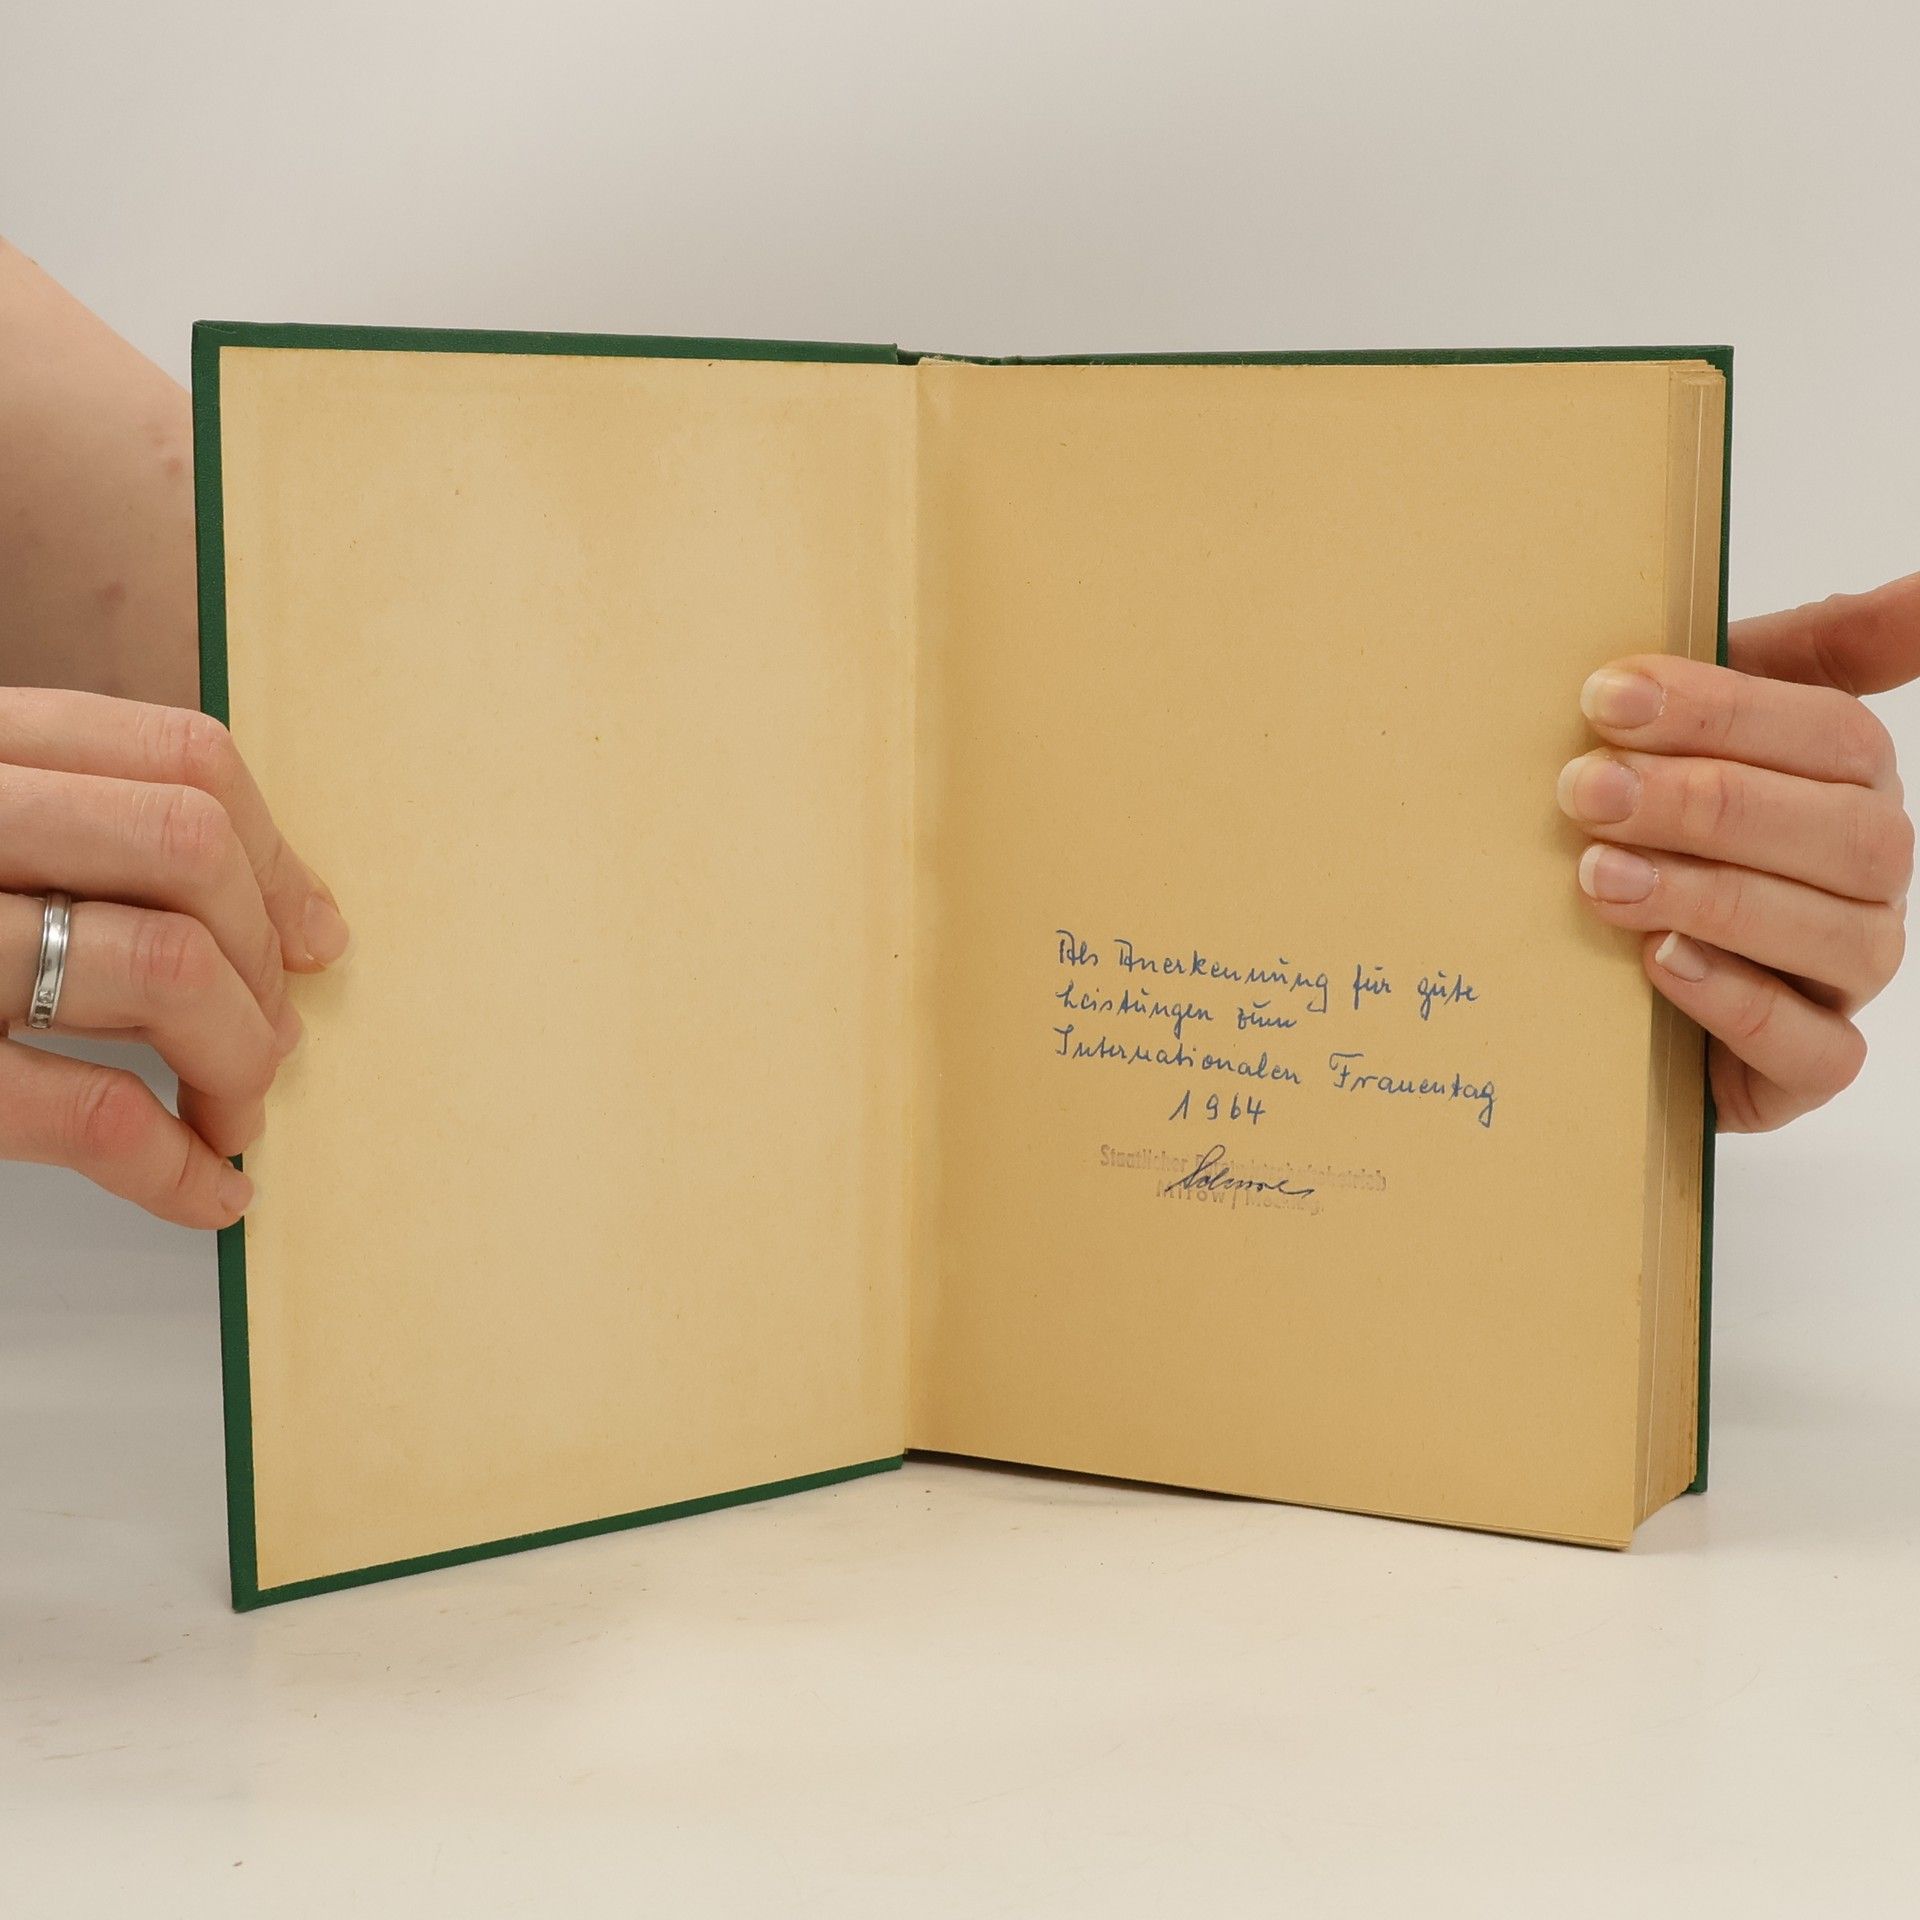 Als Anerkennung für gute
Leistungen zum
Internationalen Frauentag
1964
Staatlicher
Mirow /